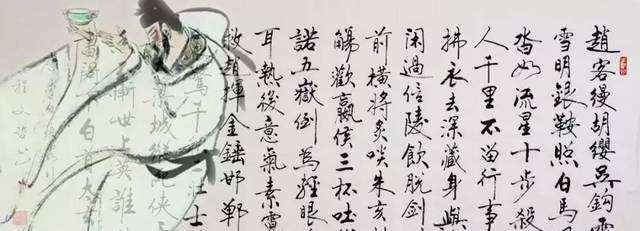 趙客縵胡纓吳鉤
雪明銀鞍照白馬
沓如流星十步殺
人千里不留行事
拂衣去深藏身與
閑過信陵飲脫劍
前橫將炙啖朱亥
觴歡嬴侯三杯吐
諾五嶽倒為輕眼
耳熱後意氣素霓
救趙揮金錘邯鄲
驚千 壯士
城縱死俠
慚世上英誰
白首太玄